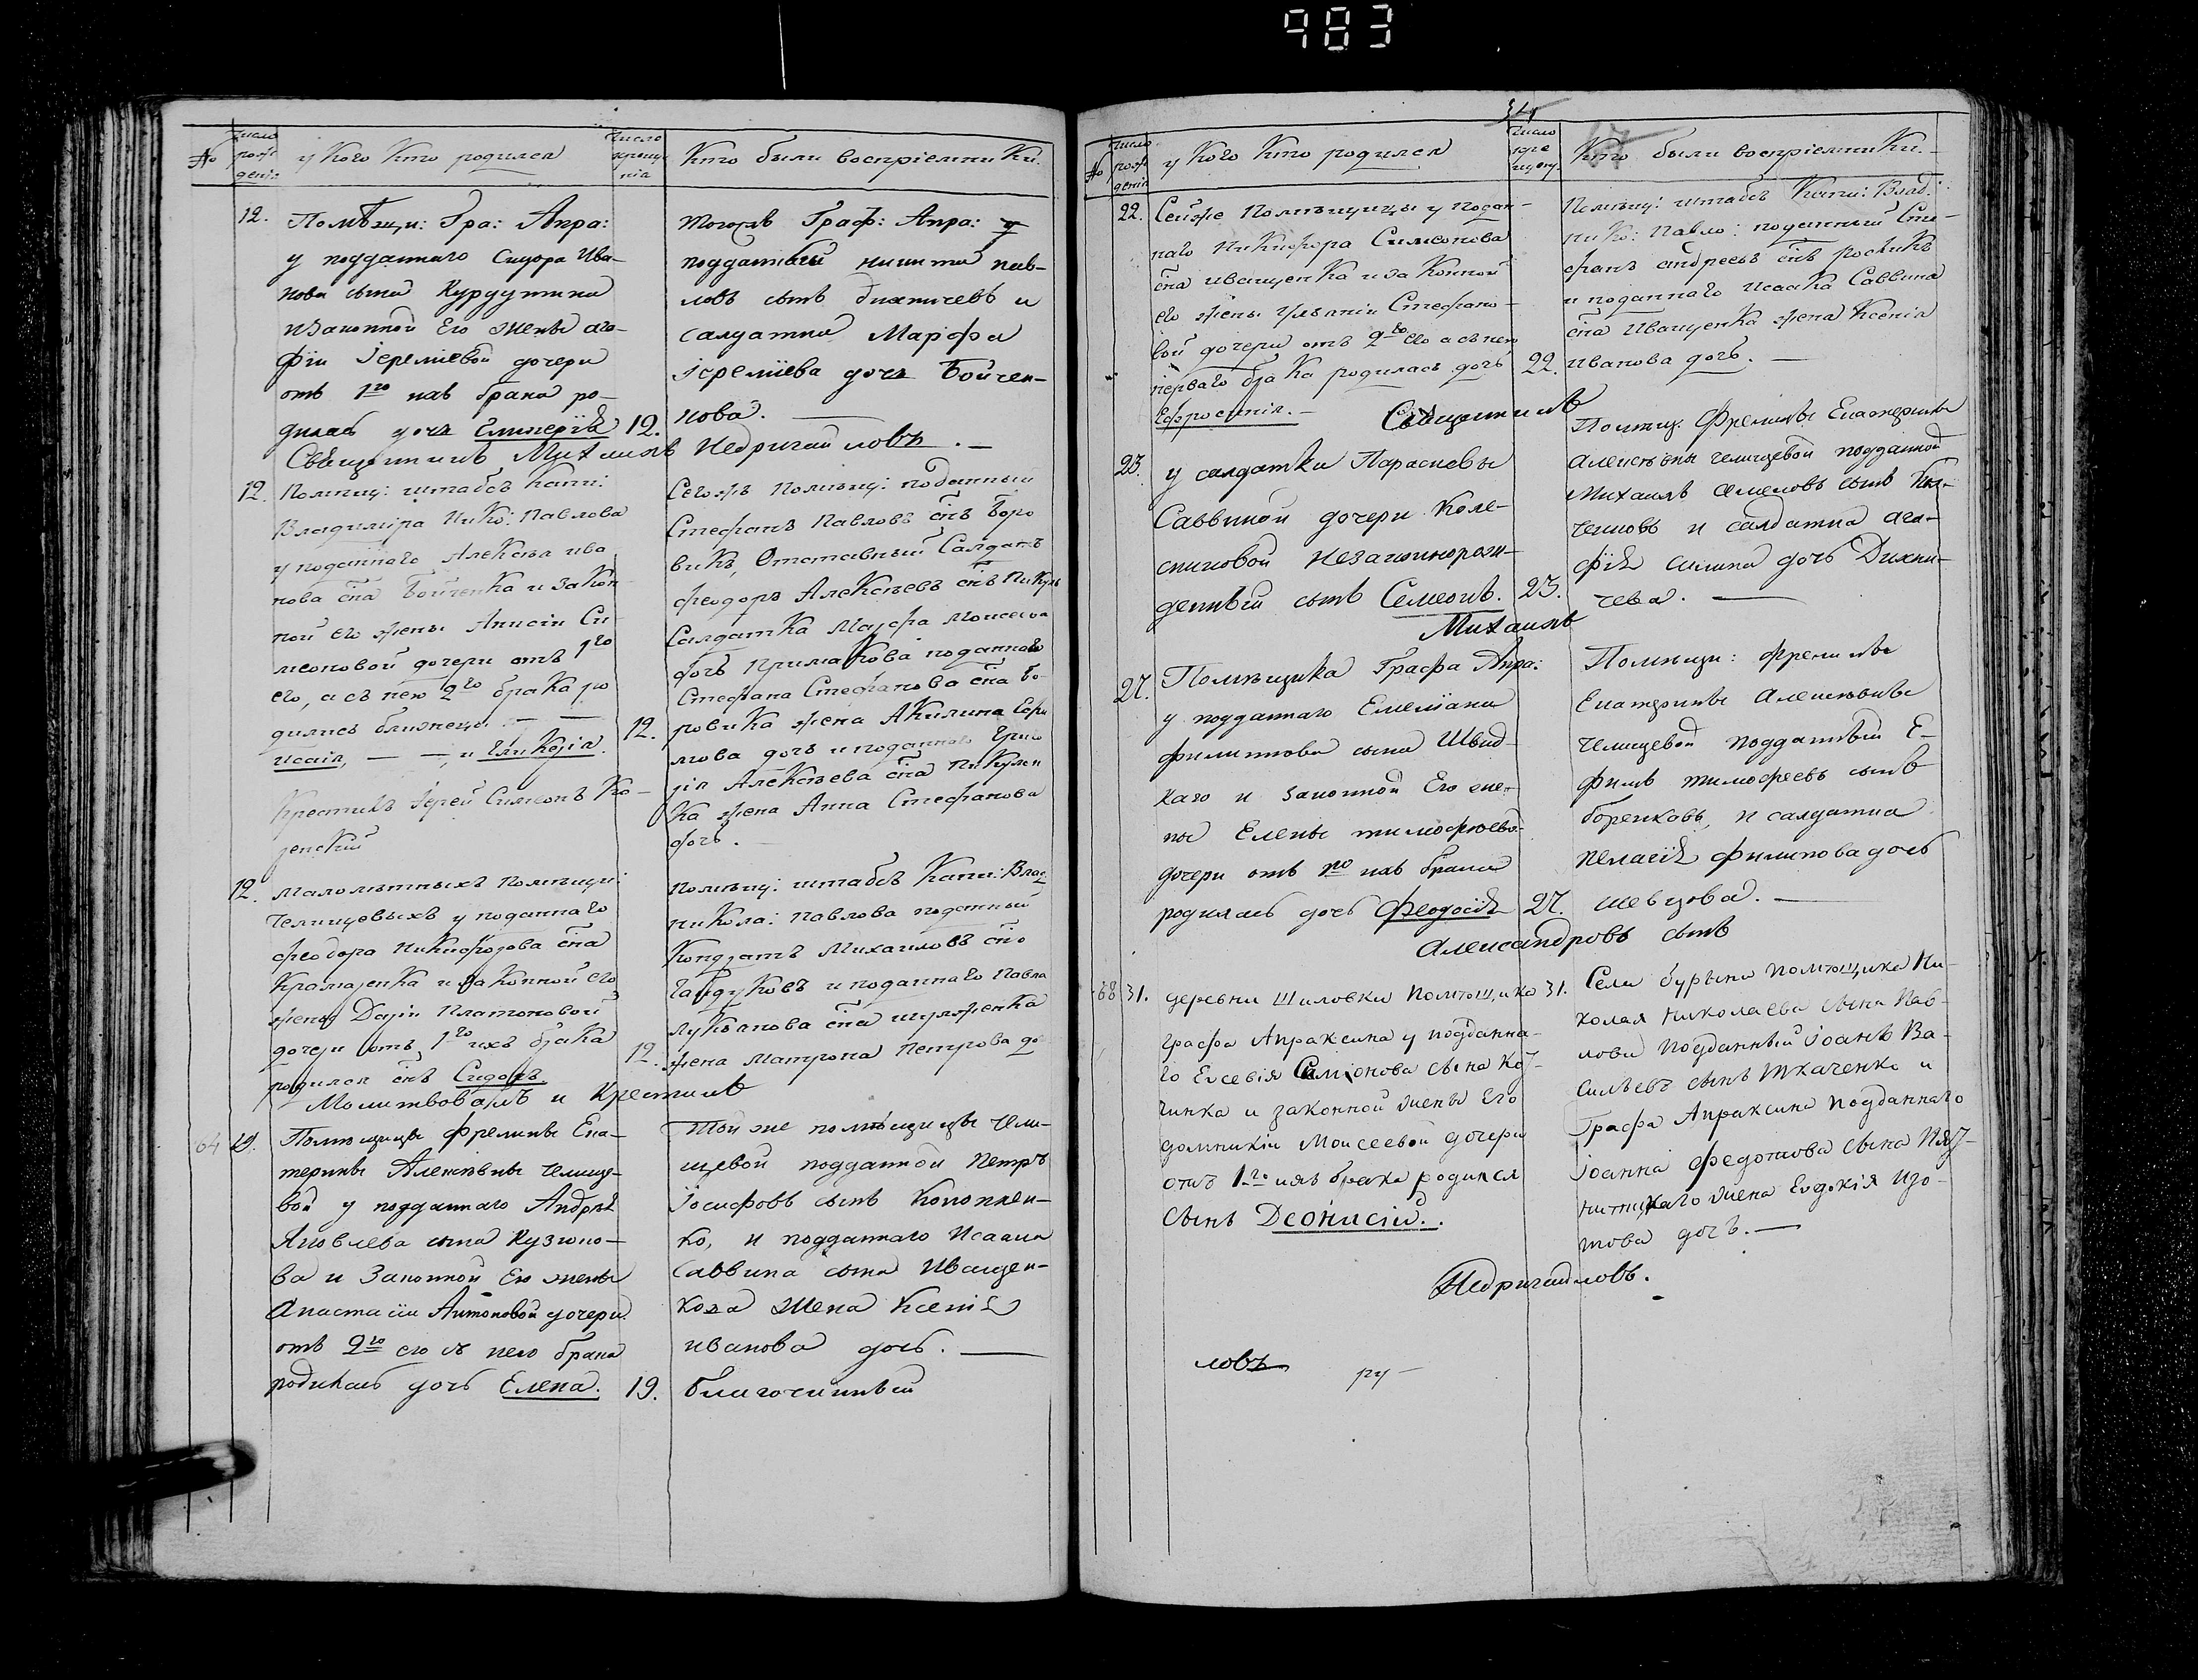 983
№
число рождения
у кого кто родился
число крещенія
Кто были воспріемники.
12. Помѣщи: Гра: Апра:
у подданнаго Сидора Ива-
нова сына Курдутина
изаконной Его жены ага-
фіи Іереміевой дочери
отъ 1го ихъ брака ро-
дилась дочь Гликерія 12.
тогожъ Граф: Апра:
подданный никита пав-
ловъ сынъ
салдатка Марѳа
Іереміева дочь Бойчен-
кова.
Священникъ Михаилъ Недригайловъ.
12. Помѣщ: штабсъ Капи:
Владиміра Нико: Павлова
у поданного Алексѣя ива
нова сна Бойченка и закон
ной его жены Анисіи Си
меоновой дочери отъ 1го
его, а съ нею 2го брака ро
дились близнецы. —
Исаія, — и Гликерія.
Крестилъ Іерей Симеонъ Ко-
зенскій
Сегожъ помѣщ: поданный
Стефанъ Павловъ снъ Боро
викъ, Отставный Салдатъ
феодоръ Алексѣевъ снъ
Салдатка Марфа Моисеева
дочь Примакова поданного
Стефана Стефанова сна Бо-
12. ровика жена Акилина Ефи
мова дочь и поданного Григо
рія Алексѣева сна Пикулен
ка жена Анна Стефанова
дочь.
12. Малолѣтныхъ помѣщи:
Челищевыхъ у поданнаго
феодора Никифорова сна
Крамаренка и законной его
жены Даріи Платоновой
дочери отъ 1го ихъ брака
родился снъ Сидоръ
помѣщ: штабсъ Капи: Влад
никола: Павлова поданный
Кондратъ Михаиловъ снъ
Гайдуковъ и поданнаго Павла
Лукьянова сна шуляженка
12. жена Матрона Петрова до-
Молитвовалъ и Крестилъ
64 19. Помѣщицы Фрелины Ека-
терины Алексѣевны Челище-
вой у подданнаго Андрѣя
Яковлева сына Кузюко-
ва и Законной Его жены
Анастасіи Антоновой дочери
отъ 2го его съ нею брака
родилась дочь Елена. 19.
Той же помѣщицы Чели-
щевой подданной Петръ
Іосифовъ сынъ Конопкен-
ко, и подданнаго Исаака
Саввина сына Иващен-
кова жена Ксенія
иванова дочь.
благочинный
№
число рожденія
у кого кто родился
число крещен.
Кто были воспріемники.
22. Сейже Помѣщицы у подан-
наго Никифора Симеонова
сна иващенка и законной
его жены Ульяніи Стефано-
вой дочери отъ 2го его а съ нею
перваго брака родилась дочь
Ефросинія.
Помѣщ: штабсъ Капи: Влад:
нико: Павло: поданный Сте-
фанъ андреевъ снъ
и поданнаго Исаака Саввина
сна Иващенка жена Ксенія
22. иванова дочь.
Священникъ
23. у салдатки Парасковы
Саввиной дочери Коле-
сниковой незаконнорож-
денный сынъ Семеонъ. 23.
Помещ. Фрелины Екатерины
Алексѣевны челищевой подданной
Михаилъ семеновъ сынъ
и салдатка ага-
фія силина дочь Дихни-
чева.
Михаилъ
27. Помѣщика Графа Апра:
у подданнаго Емеліана
филиппова сына Швид-
каго и законной Его же-
ны Елены тимофѣево-
дочери отъ 1го ихъ брака
родилась дочь Феодосія 27.
Помѣщи: фрелины
Екатерины Алексѣевны
Челищевой подданный Е-
фимъ тимофеевъ сынъ
боренковъ, и салдатка
пелагія филипова дочь
шевцова.
Александровъ сынъ
68 31. деревни Шиловки помѣщика 31.
Графа Апраксина у подданна-
го Евсевія Самсонова сына Ко-
чинка и законной жены Его
домникіи Моисеевой дочери
отъ 1го ихъ брака родился
сынъ Деонисій.
Села бурыни помѣщика Ни-
колая Николаева сына Пав-
лова подданный Іоанъ Ва-
сильевъ сынъ Ткаченко и
Графа Апраксина подданнаго
Іоанна федотова сына
жена Евдокія Изо-
това дочь.
Недригайловъ.
ловъ
ру